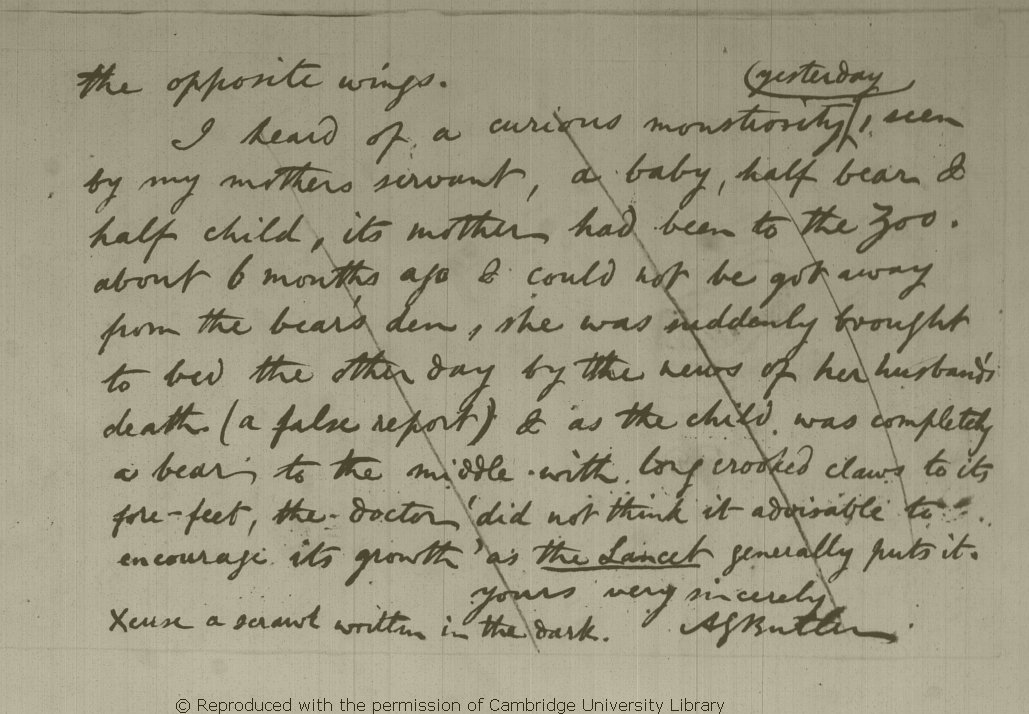 the opposite wings.
(yesterday
I heard of a curious monstrosity(, seen
by my mothers servant, a baby, half bear &
half child, its mother had been to the Zoo.
about 6 months ago & could not be got away
from the bear's den, she was suddenly brought
to bed the other day by the news of her husband's
death (a false report) & as the child was completely
a bear to the middle with long crooked claws to its
fore-feet, the doctor 'did not think it advisable to
encourage its growth' as the Lancet generally puts it.
yours very sincerely
Xcuse a scrawl written in the dark. AGButler
© Reproduced with the permission of Cambridge University Library